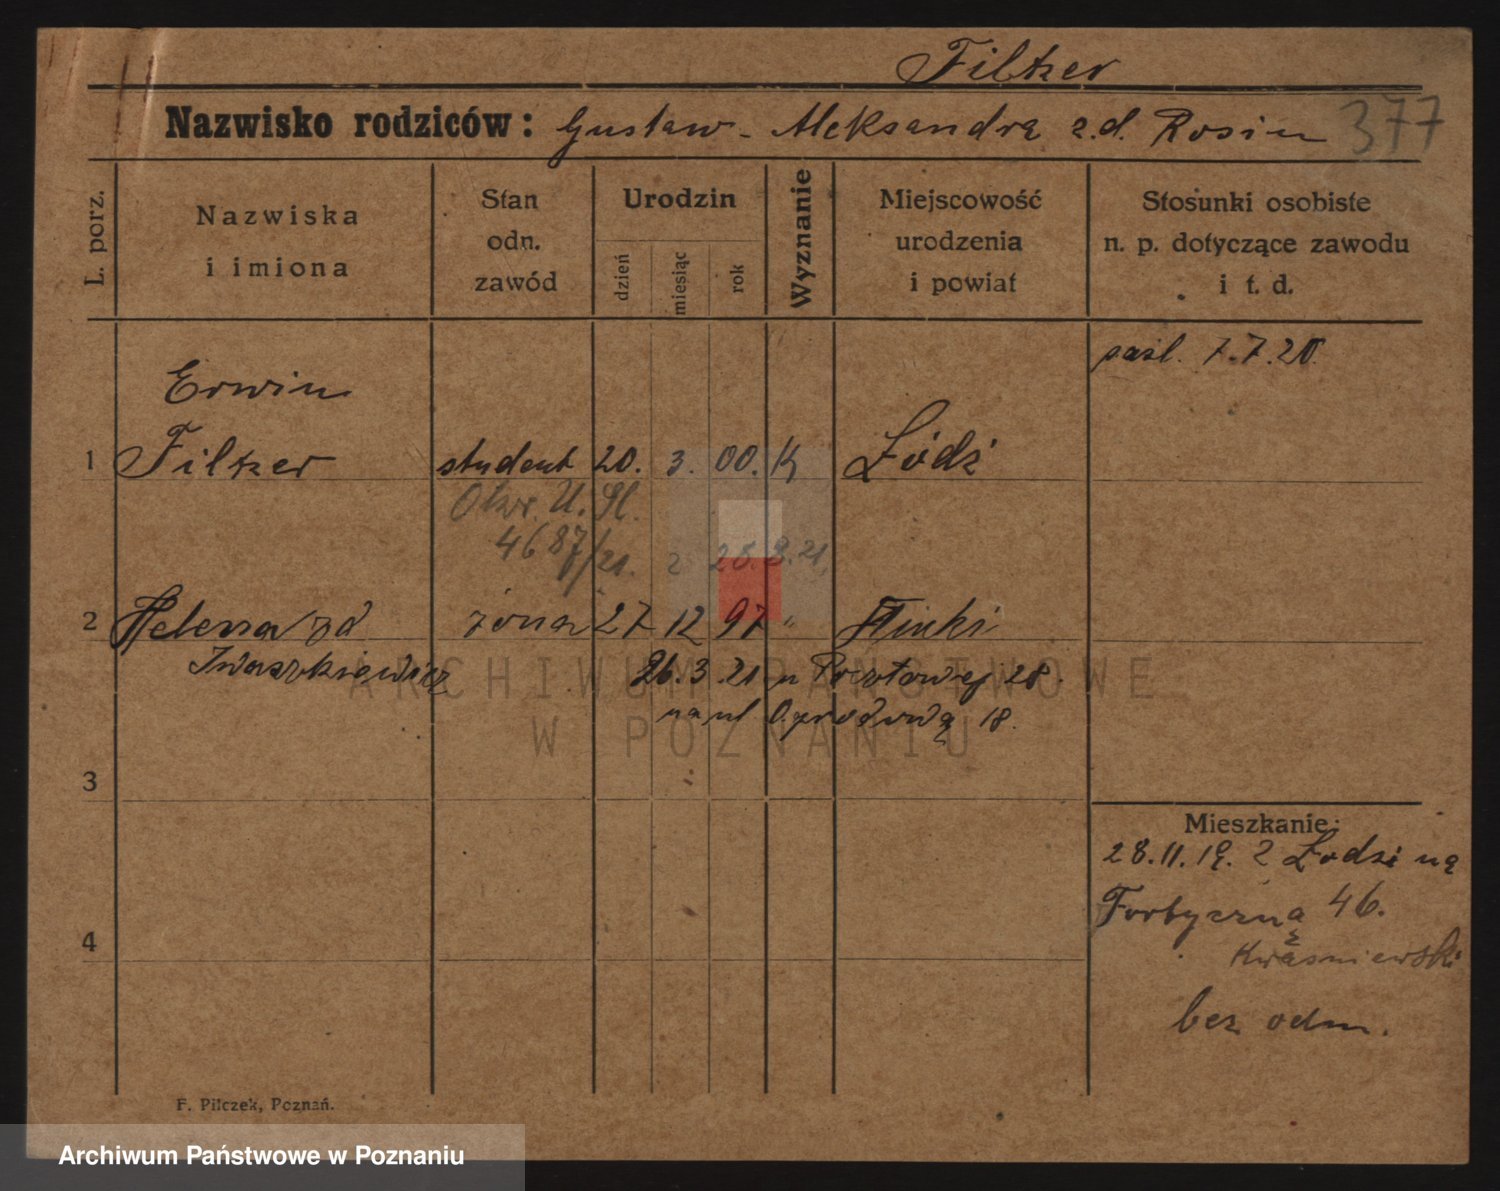 Filtzer
Nazwisko rodziców: Gustaw - Aleksandra z.d. Rosin 377
L. porz.
Nazwiska
i imiona
Stan
odn.
zawód
Urodzin
dzień
miesiąc
rok
Wyznanie
Miejscowość
urodzenia
i powiat
Stosunki osobiste
n. p. dotyczące zawodu
i t. d.
7.7.20
Erwin
1 Filtzer student 20. 3. 00. K Łódź
U. Gl.
4687/21. 2 28.9.21.
2 Helena zd żona 27 12 97 "
Iwaszkiewicz 26.3.21 u Pocztowej 28.
na ul Ogrodową 18.
3
Mieszkanie:
28.11.19. z Łodzi na
Forteczną 46.
Kwaśniewski
4
bez odm.
F. Pilczek, Poznań.
ARCHIWUM PAŃSTWOWE
W POZNANIU
Archiwum Państwowe w Poznaniu